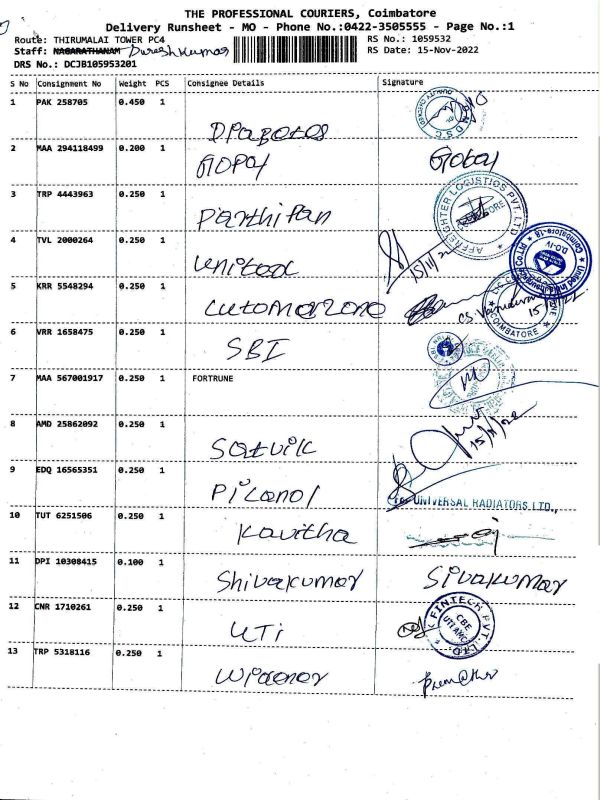 THE PROFESSIONAL COURIERS, Coimbatore
Delivery Runsheet - MO - Phone No.:0422-3505555 - Page No.:1
Route: THIRUMALAI TOWER PC4 RS No.: 1059532
Staff: NAGARATHANAM Sureshkumar RS Date: 15-Nov-2022
DRS No.: DCJB105953201
S No Consignment No Weight PCS Consignee Details Signature
1 PAK 258705 0.450 1
2 MAA 294118499 0.200 1 GOPal Gobal
3 TRP 4443963 0.250 1 Parthipan AFFREIGHTER LOGISTICS PVT. LTD
4 TVL 2000264 0.250 1 United 15/11/22
5 KRR 5548294 0.250 1 COIMBATORE 15/11/22
6 VRR 1658475 0.250 1 SBI
7 MAA 567001917 0.250 1 FORTRUNE
8 AMD 25862092 0.250 1 Satvik 15/11/22
9 EDQ 16565351 0.250 1 UNIVERSAL RADIATORS LTD.,
10 TUT 6251506 0.250 1 Kavitha
11 DPI 10308415 0.100 1 Shivakumar Sivakumar
12 CNR 1710261 0.250 1 UTI FINTECH PVT. LTD. CBE
13 TRP 5318116 0.250 1